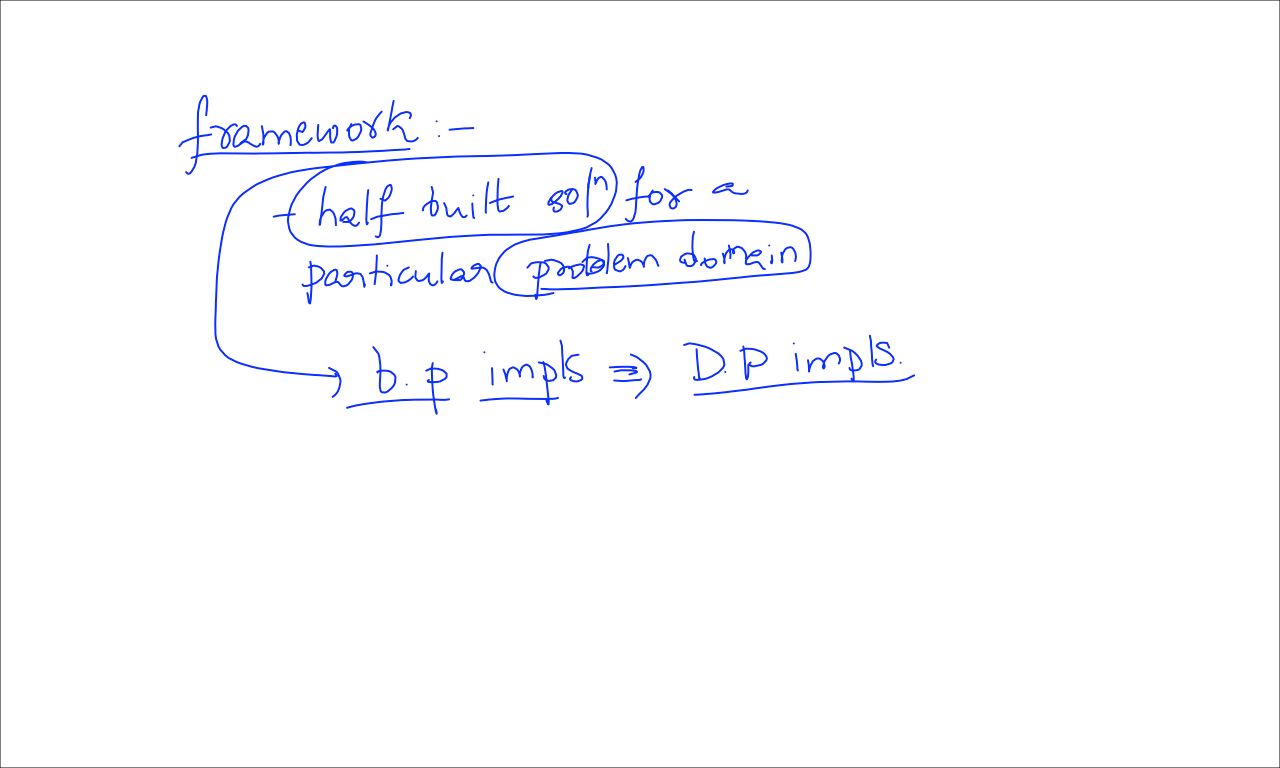 framework :-
- half built solⁿ for a
particular problem domain
b.p impls ⇒ D.P impls.